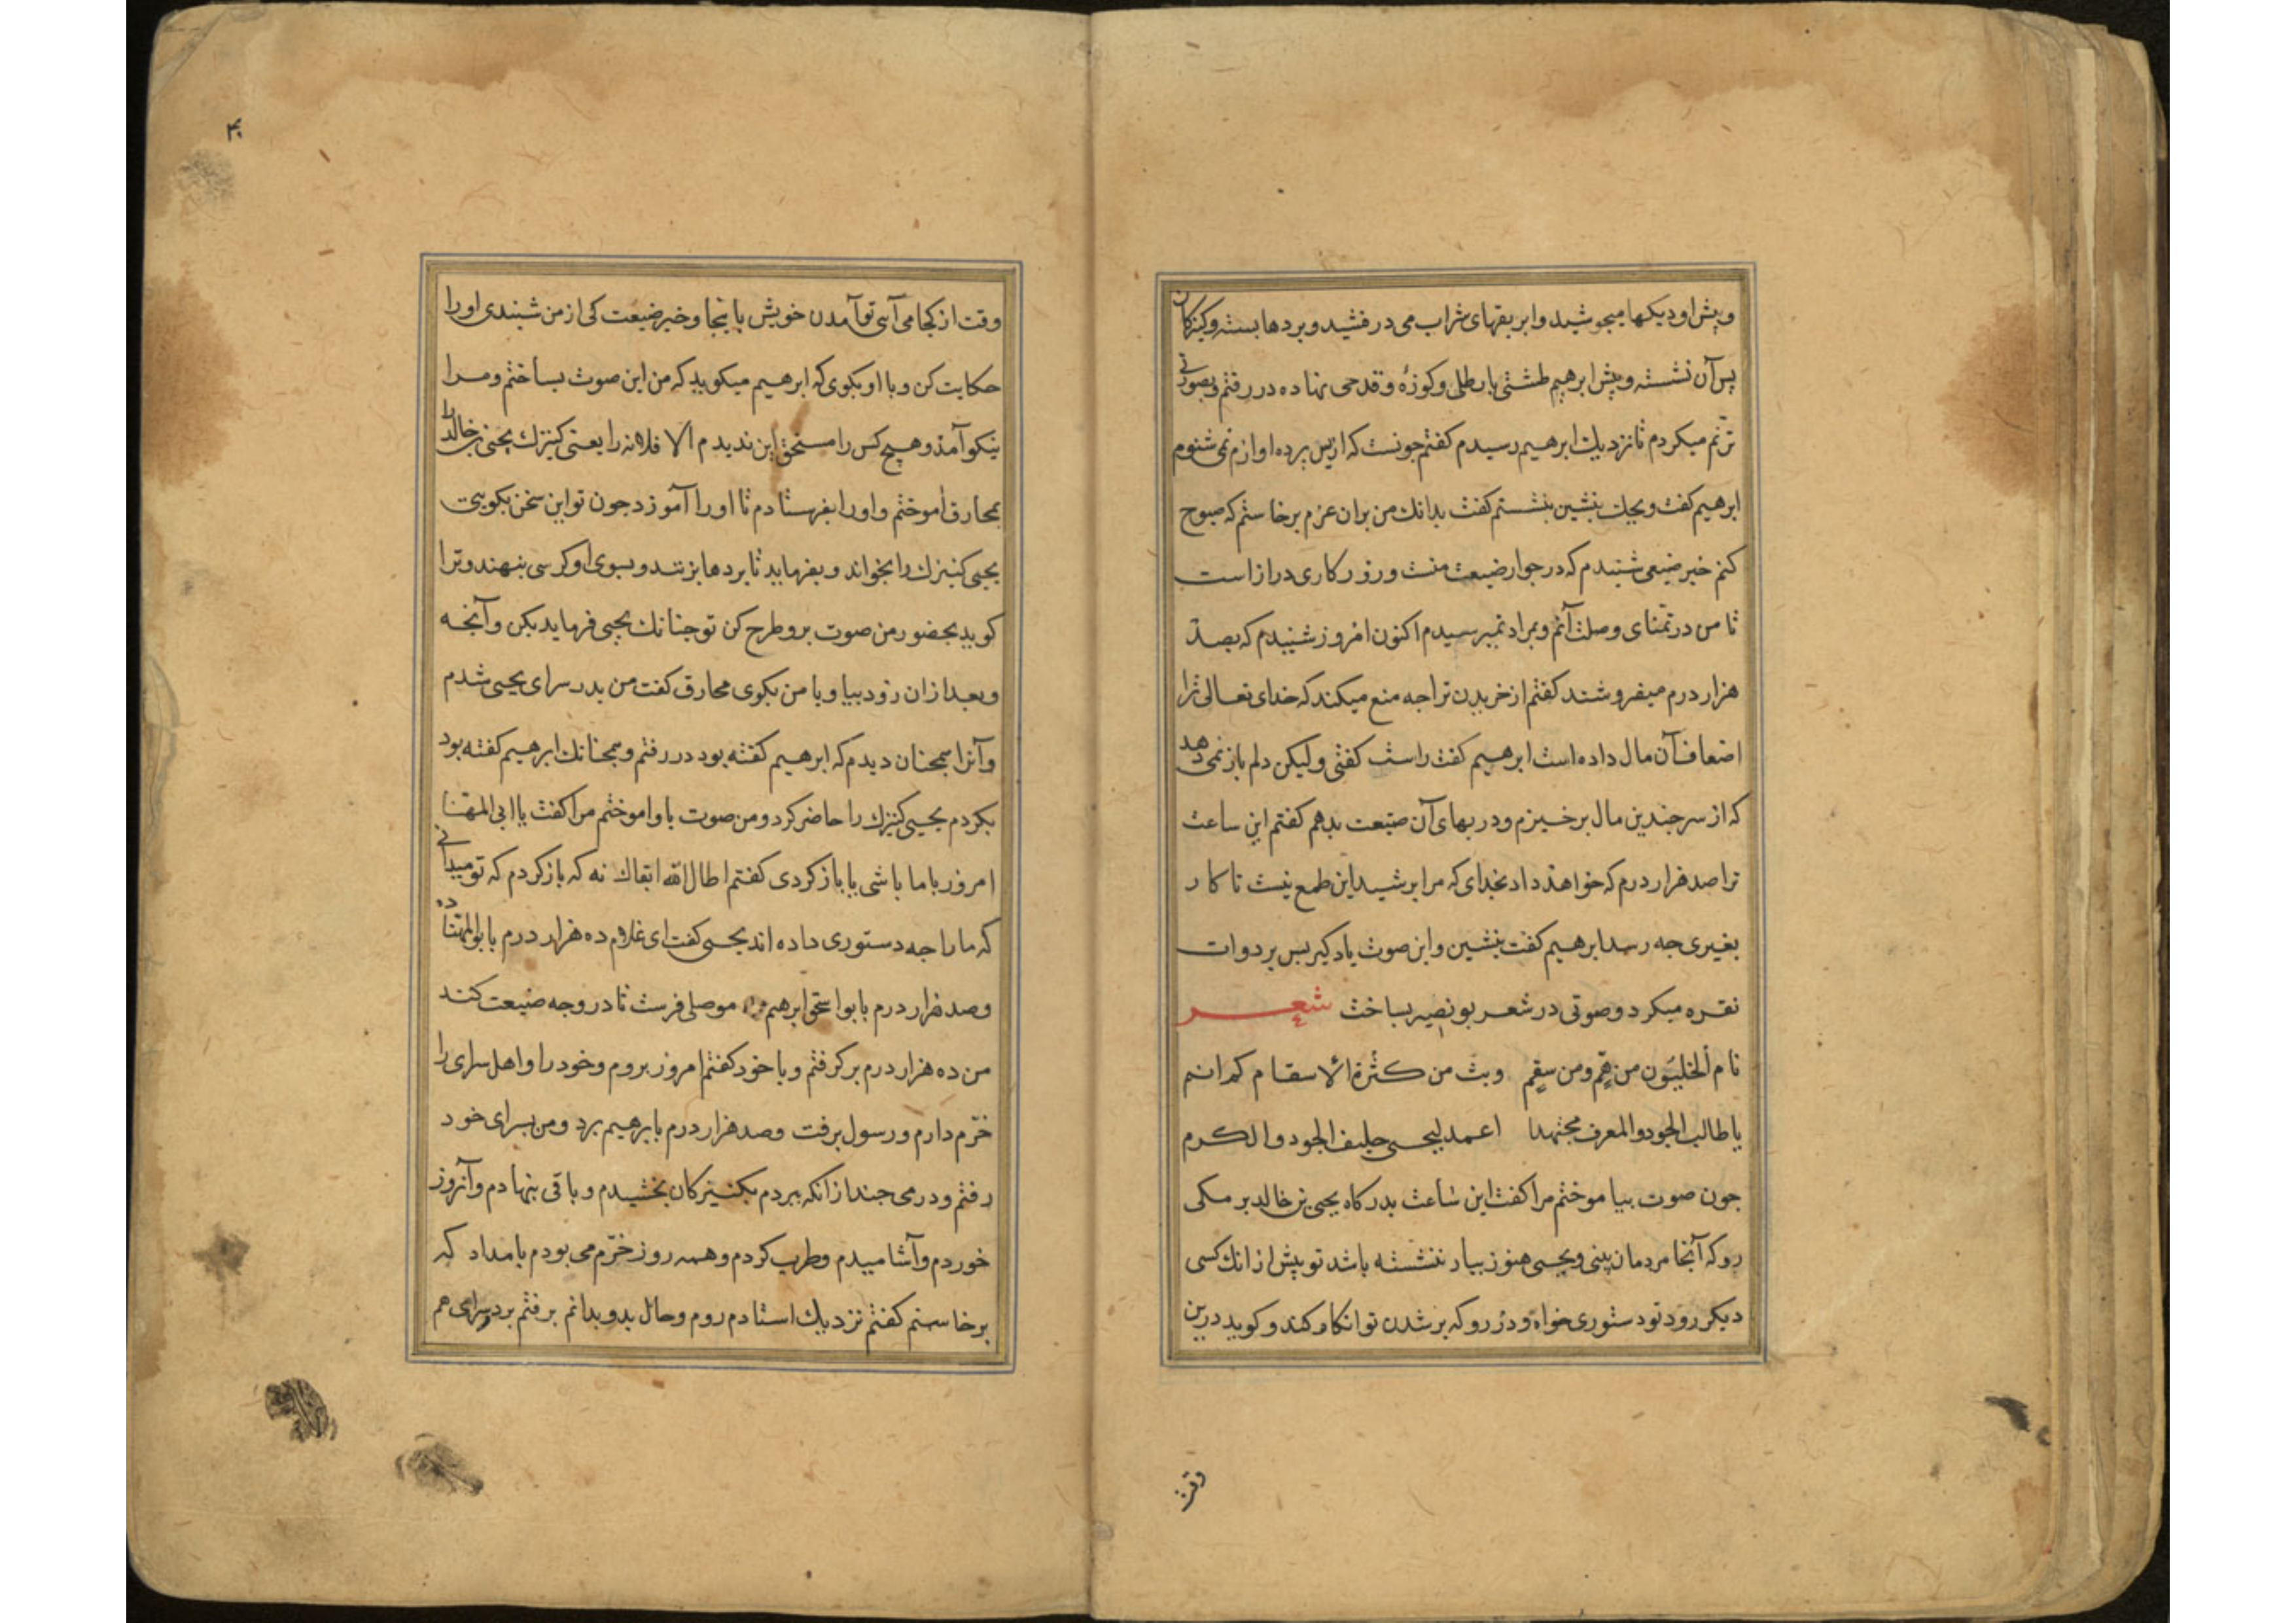 وپیش او دیکها میجوشید وابریقهای شراب می درفشید وپردها بسته وکنیزکان
پس آن نشسته وپیش ابرهیم طشتی با رطلی وکوزهٔ وقدحی نهاده در رفتم وبصوتی
ترنّم میکردم تا نزدیك ابرهیم رسیدم کفتم جونست که از پس پرده اوازم نمی شنوم
ابرهیم کفت ویحك بنشین بنشستم کفت بدانك من بران عزم برخاستم که صبوح
کنم خبر ضیعی شنیدم که در جوار ضیعت منست وروزکاری درازاست
تا من در تمنّای وصلت آنم وبمراد نمیرسیدم اکنون امروز شنیدم که بصد
هزار درم میفروشند کفتم از خریدن ترا جه منع میکند که خدای تعالی ترا
اضعاف آن مال داده است ابرهیم کفت راست کفتی ولیکن دلم باز نمی دهد
که از سر جندین مال برخیزم ودر بهای آن ضیعت بدهم کفتم این ساعت
ترا صد هزار درم که خواهد داد بخدای که مرا بر شید این طمع نیست تا کار
بغیری جه رسد ابرهیم کفت بنشین واین صوت یاد کیر پس بر دوات
نقره میکرد وصوتی در شعر بو نصیر بساخت شعر
نام الخلیّون من همّ ومن سقم وبت من کثرة الاسقام لم انم
یا طالب الجود والمعرف مجتهدا اعمد لیحیی حلیف الجود والکرم
جون صوت بیاموختم مرا کفت این ساعت بدرکاه یحیی بن خالد برمکی
رو که آنجا مردمان بینی ویحیی هنوز ببار ننشسته باشد تو پیش از انك کسی
دیکر رود تو دستوری خواه ودر رو که بر شدن تو انکار کند وکوید درین
وقت
۴۰
وقت از کجا می آیی تو آمدن خویش باینجا وخبر ضیعت کی از من شنیدی اورا
حکایت کن وبا او بکوی که ابرهیم میکوید که من این صوت بساختم ومرا
نیکو آمد وهیچ کس را مستحق این ندیدم الا فلانه را یعنی کنیزك یحیی بن خالد را
بمخارق اموختم واورا بفرستادم تا اورا آموزد جون تو این سخن بکویی
یحیی کنیزك را بخواند وبفرماید تا پردها بزنند وبسوی او کرسی بنهند وترا
کوید بحضور من صوت برو طرح کن تو جنانك یحیی فرماید بکن وآنجه
وبعد ازان زود بیا وبا من بکوی مخارق کفت من بدر سرای یحیی شدم
وآنرا همجنان دیدم که ابرهیم کفته بود در رفتم وهمجنانك ابرهیم کفته بود
بکردم یحیی کنیزك را حاضر کرد ومن صوت باو اموختم مرا کفت یا ابی المهنا
امروز با ما باشی یا باز کردی کفتم اطال الله ابقاك نه که باز کردم که تو میدانی
که مارا جه دستوری داده اند یحیی کفت ای غلام ده هزار درم با بوالمهنا ده
وصد هزار درم بابو اسحق ابرهیم موصلی فرست تا در وجه ضیعت کند
من ده هزار درم برکرفتم وبا خود کفتم امروز بروم وخود را واهل سرای را
خرّم دارم ورسول برفت وصد هزار درم بابرهیم برد ومن بسرای خود
رفتم ودرمی جند ازانکه ببردم بکنیزکان بخشیدم وباقی بنهادم وآنروز
خوردم وآشامیدم وطرب کردم وهمه روز خرّم می بودم بامداد که
برخاستم کفتم نزدیك استادم روم وحال بدو بدانم برفتم بر در سرای هم